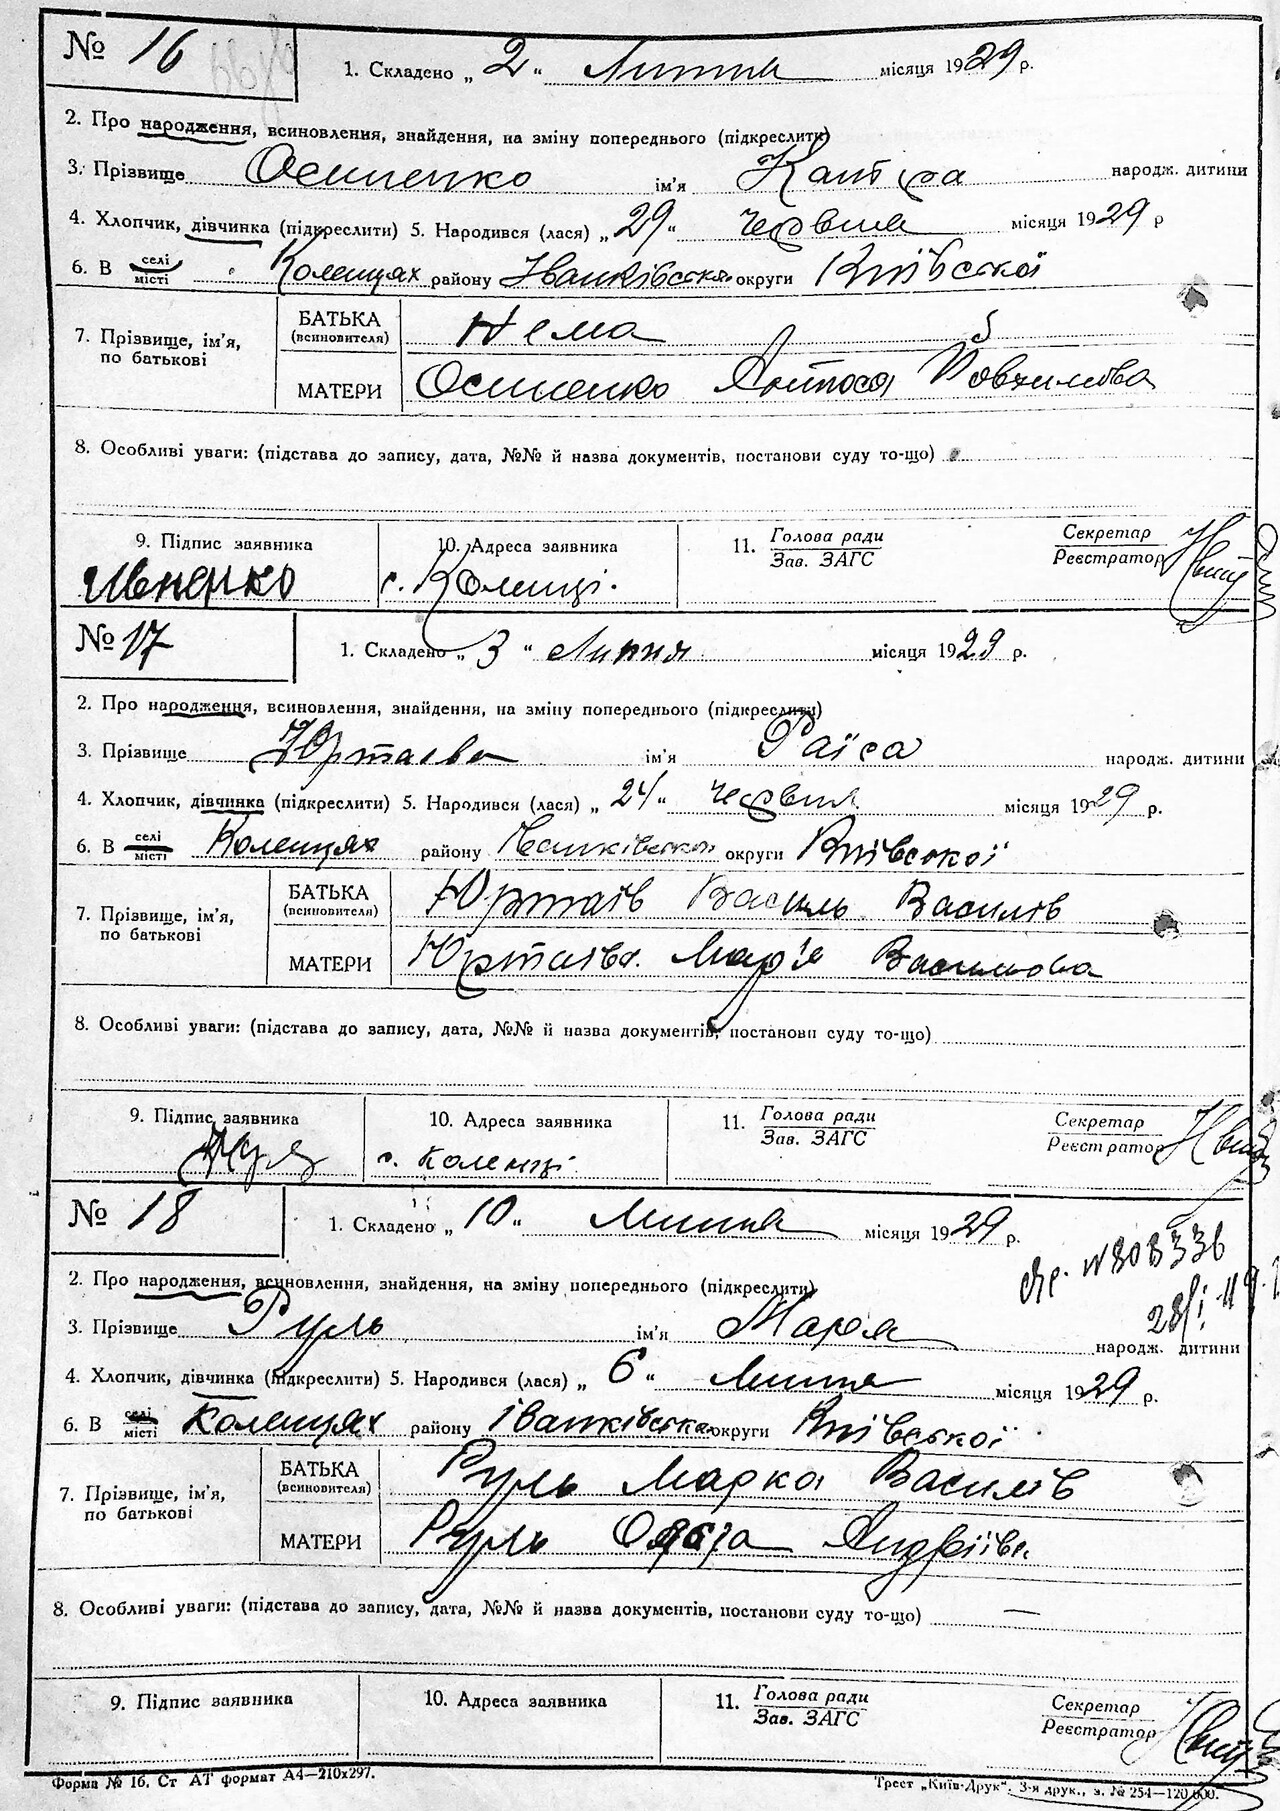 № 16 1. Складено „ 2 “ Липня місяця 1929 р.
2. Про народження, всиновлення, знайдення, на зміну попереднього (підкреслити)
3. Прізвище Осипенко ім'я народж. дитини
4. Хлопчик, дівчинка (підкреслити) 5. Народився (лася) „ 29 “ червня місяця 1929 р
6. В селі Коленцях району Іванківська округи Київської
місті
7. Прізвище, ім'я, по батькові БАТЬКА (всиновителя) Нема
МАТЕРИ Осипенко
8. Особливі уваги: (підстава до запису, дата, №№ й назва документів, постанови суду то-що)
9. Підпис заявника 10. Адреса заявника 11. Голова ради Секретар
Зав. ЗАГС Реєстратор
с. Коленці.
№ 17 1. Складено „ 3 “ Липня місяця 1929 р.
2. Про народження, всиновлення, знайдення, на зміну попереднього (підкреслити)
3. Прізвище Юртаєва ім'я Раїса народж. дитини
4. Хлопчик, дівчинка (підкреслити) 5. Народився (лася) „ 24 “ червня місяця 1929 р.
6. В селі Коленцях району округи Київської
місті
7. Прізвище, ім'я, по батькові БАТЬКА (всиновителя) Юртаїв Василь Василів
МАТЕРИ Юртаїва Мар'я Василівова
8. Особливі уваги: (підстава до запису, дата, №№ й назва документів, постанови суду то-що)
9. Підпис заявника 10. Адреса заявника 11. Голова ради Секретар
Зав. ЗАГС Реєстратор
с. Коленці
№ 18 1. Складено „ 10 “ Липня місяця 1929 р.
2. Про народження, всиновлення, знайдення, на зміну попереднього (підкреслити)
3. Прізвище Руль ім'я Марія народж. дитини
4. Хлопчик, дівчинка (підкреслити) 5. Народився (лася) „ 6 “ Липня місяця 1929 р.
6. В селі Коленцях району Іванківська округи Київської
місті
7. Прізвище, ім'я, по батькові БАТЬКА (всиновителя) Руль Марко Василів
МАТЕРИ Руль Андріївн
8. Особливі уваги: (підстава до запису, дата, №№ й назва документів, постанови суду то-що) —
9. Підпис заявника 10. Адреса заявника 11. Голова ради Секретар
Зав. ЗАГС Реєстратор
Форма № 16. Ст АТ формат А4—210x297. Трест „Київ-Друк“. 3-я друк., з. № 254—120,000.